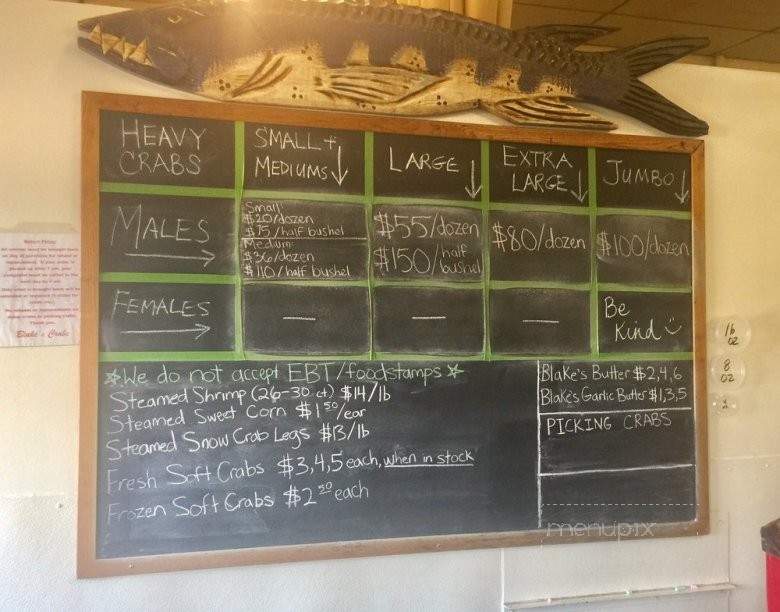 HEAVY CRABS
SMALL + MEDIUMS ↓
LARGE ↓
EXTRA LARGE ↓
JUMBO ↓
MALES →
Small:
$20/dozen
$75/half bushel
Medium:
$36/dozen
$110/half bushel
$55/dozen
$150/half bushel
$80/dozen
$100/dozen
FEMALES →
—
—
—
Be
Kind
☆We do not accept EBT/foodstamps☆
Steamed Shrimp (26-30 ct) $14/lb
Steamed Sweet Corn $1⁵⁰/ear
Steamed Snow Crab Legs $13/lb
Fresh Soft Crabs $3,4,5 each, when in stock
Frozen Soft Crabs $2⁵⁰ each
Blake's Butter $2,4,6
Blake's Garlic Butter $1,3,5
PICKING CRABS
Blake's Crabs
16
oz
8
oz
menupix